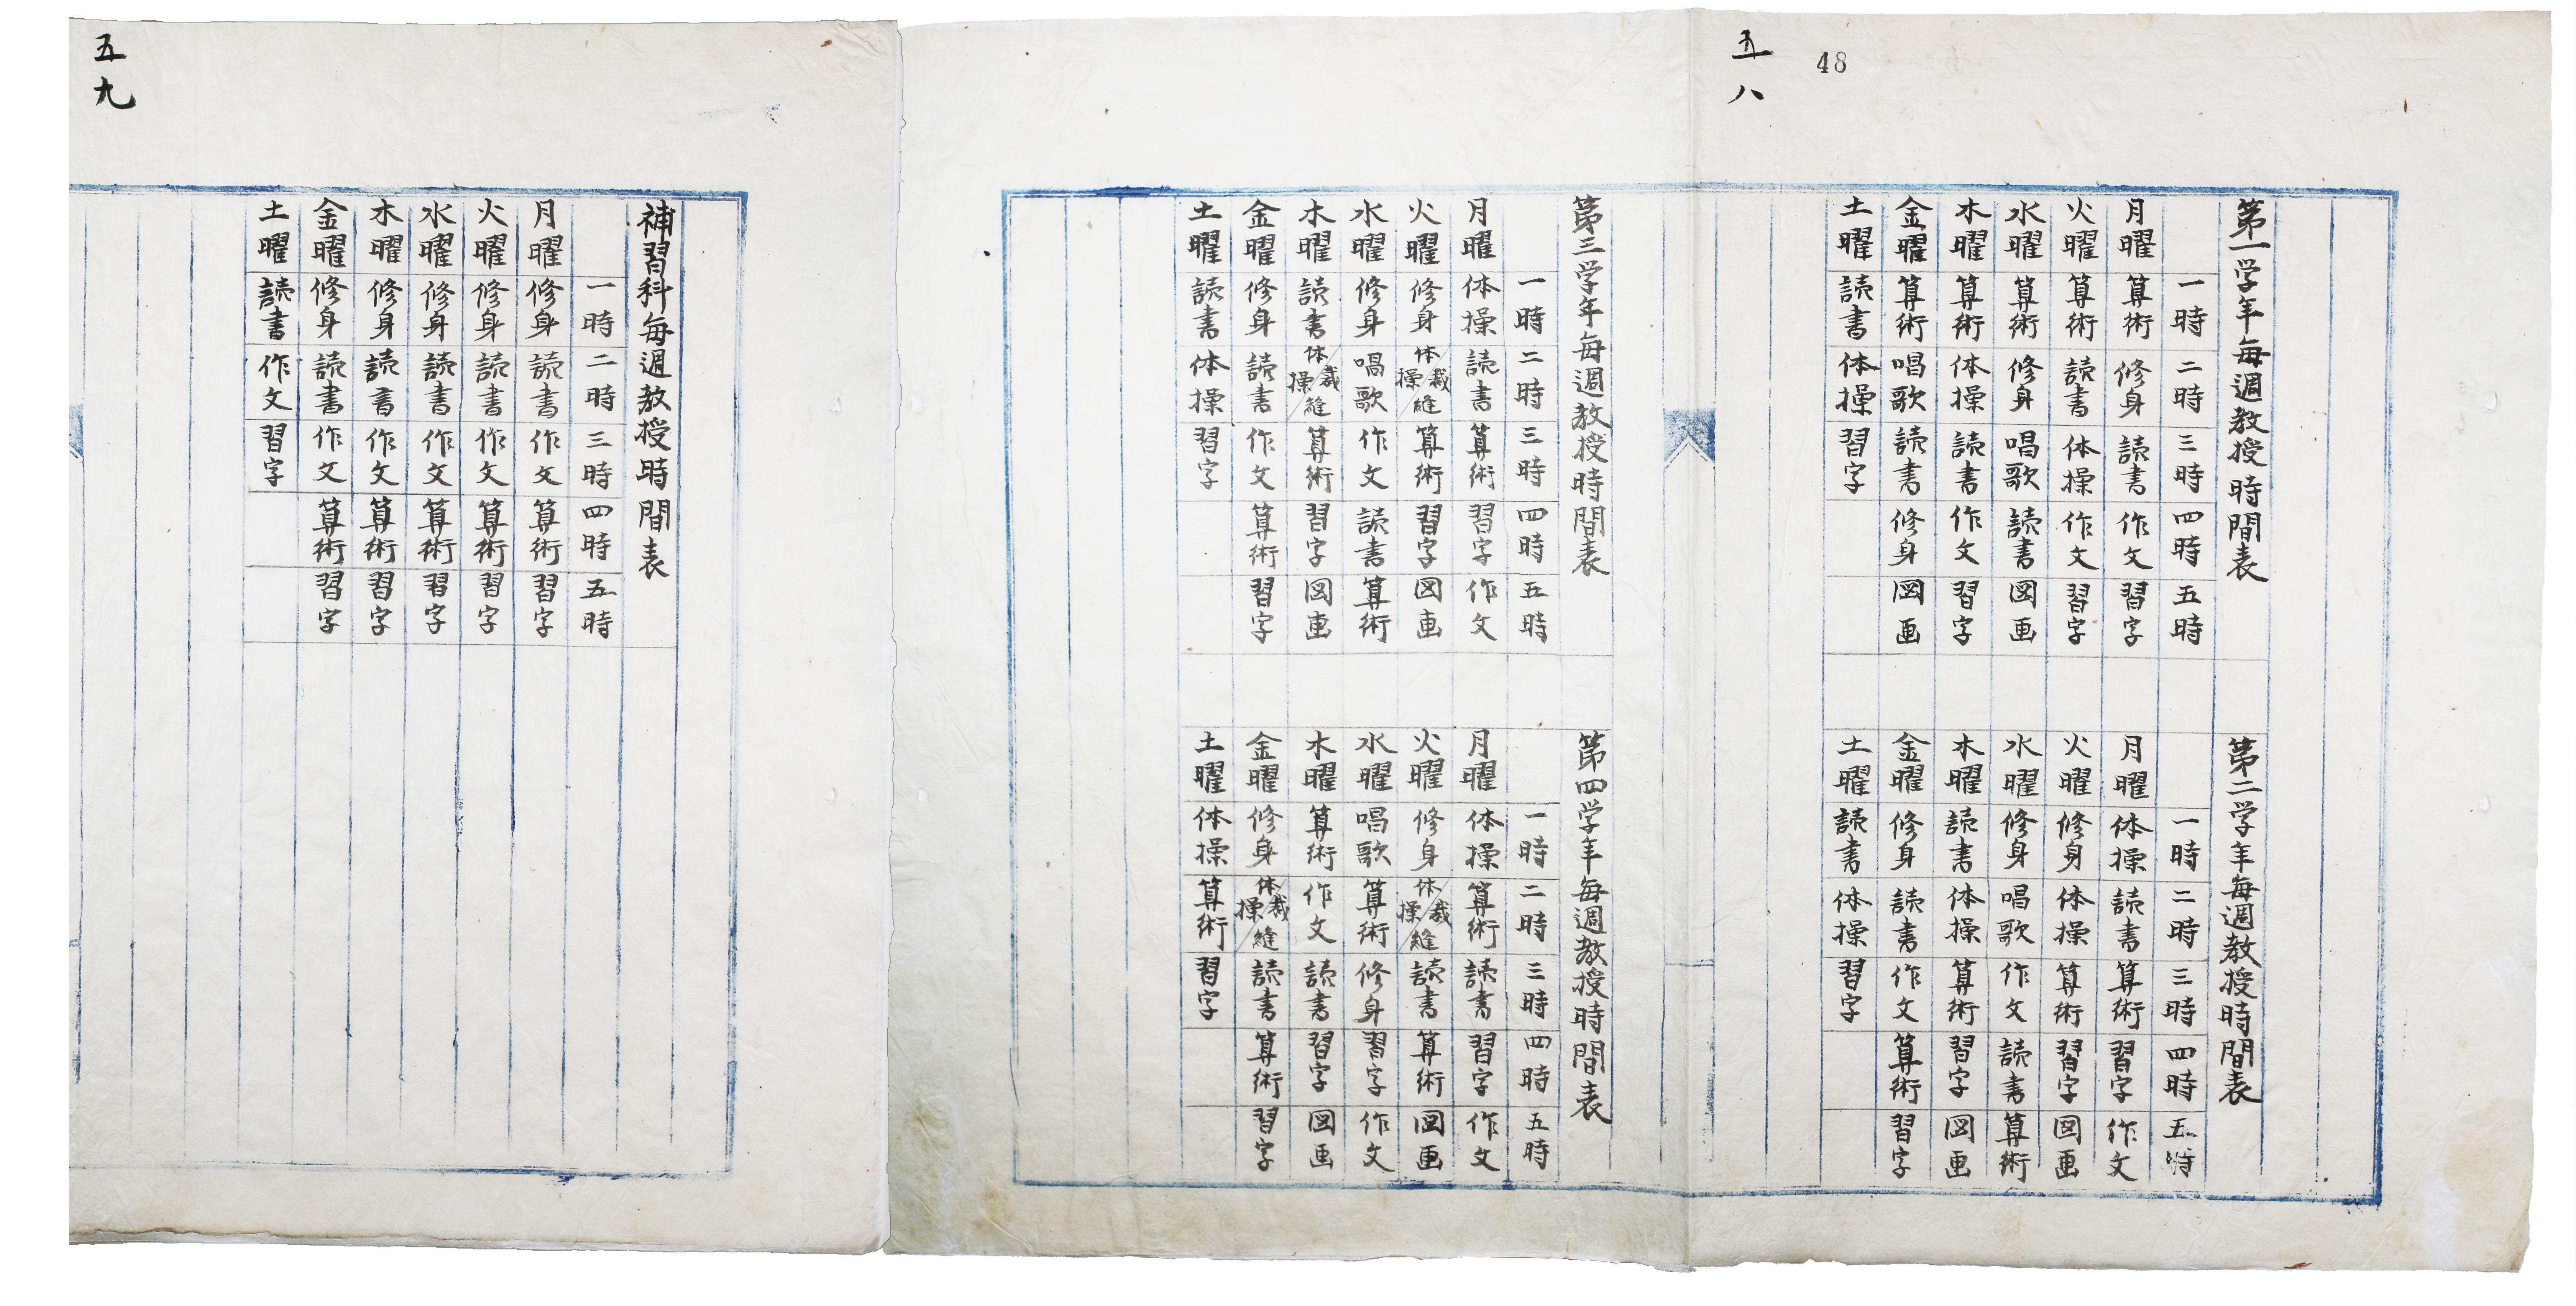 五八
48
第一学年毎週教授時間表
一時 二時 三時 四時 五時
月曜 算術 修身 読書 作文 習字
火曜 算術 読書 体操 作文 習字
水曜 算術 修身 唱歌 読書 図画
木曜 算術 体操 読書 作文 習字
金曜 算術 唱歌 読書 修身 図画
土曜 読書 体操 習字
第二学年毎週教授時間表
一時 二時 三時 四時 五時
月曜 体操 読書 算術 習字 作文
火曜 修身 体操 算術 習字 図画
水曜 修身 唱歌 作文 読書 算術
木曜 読書 体操 算術 習字 図画
金曜 修身 読書 作文 算術 習字
土曜 読書 体操 習字
第三学年毎週教授時間表
一時 二時 三時 四時 五時
月曜 体操 読書 算術 習字 作文
火曜 修身 裁縫/体操 算術 習字 図画
水曜 修身 唱歌 作文 読書 算術
木曜 読書 裁縫/体操 算術 習字 図画
金曜 修身 読書 作文 算術 習字
土曜 読書 体操 習字
第四学年毎週教授時間表
一時 二時 三時 四時 五時
月曜 体操 算術 読書 習字 作文
火曜 修身 裁縫/体操 読書 算術 図画
水曜 唱歌 算術 修身 習字 作文
木曜 算術 作文 読書 習字 図画
金曜 修身 裁縫/体操 読書 算術 習字
土曜 体操 算術 習字
五九
補習科毎週教授時間表
一時 二時 三時 四時 五時
月曜 修身 読書 作文 算術 習字
火曜 修身 読書 作文 算術 習字
水曜 修身 読書 作文 算術 習字
木曜 修身 読書 作文 算術 習字
金曜 修身 読書 作文 算術 習字
土曜 読書 作文 習字